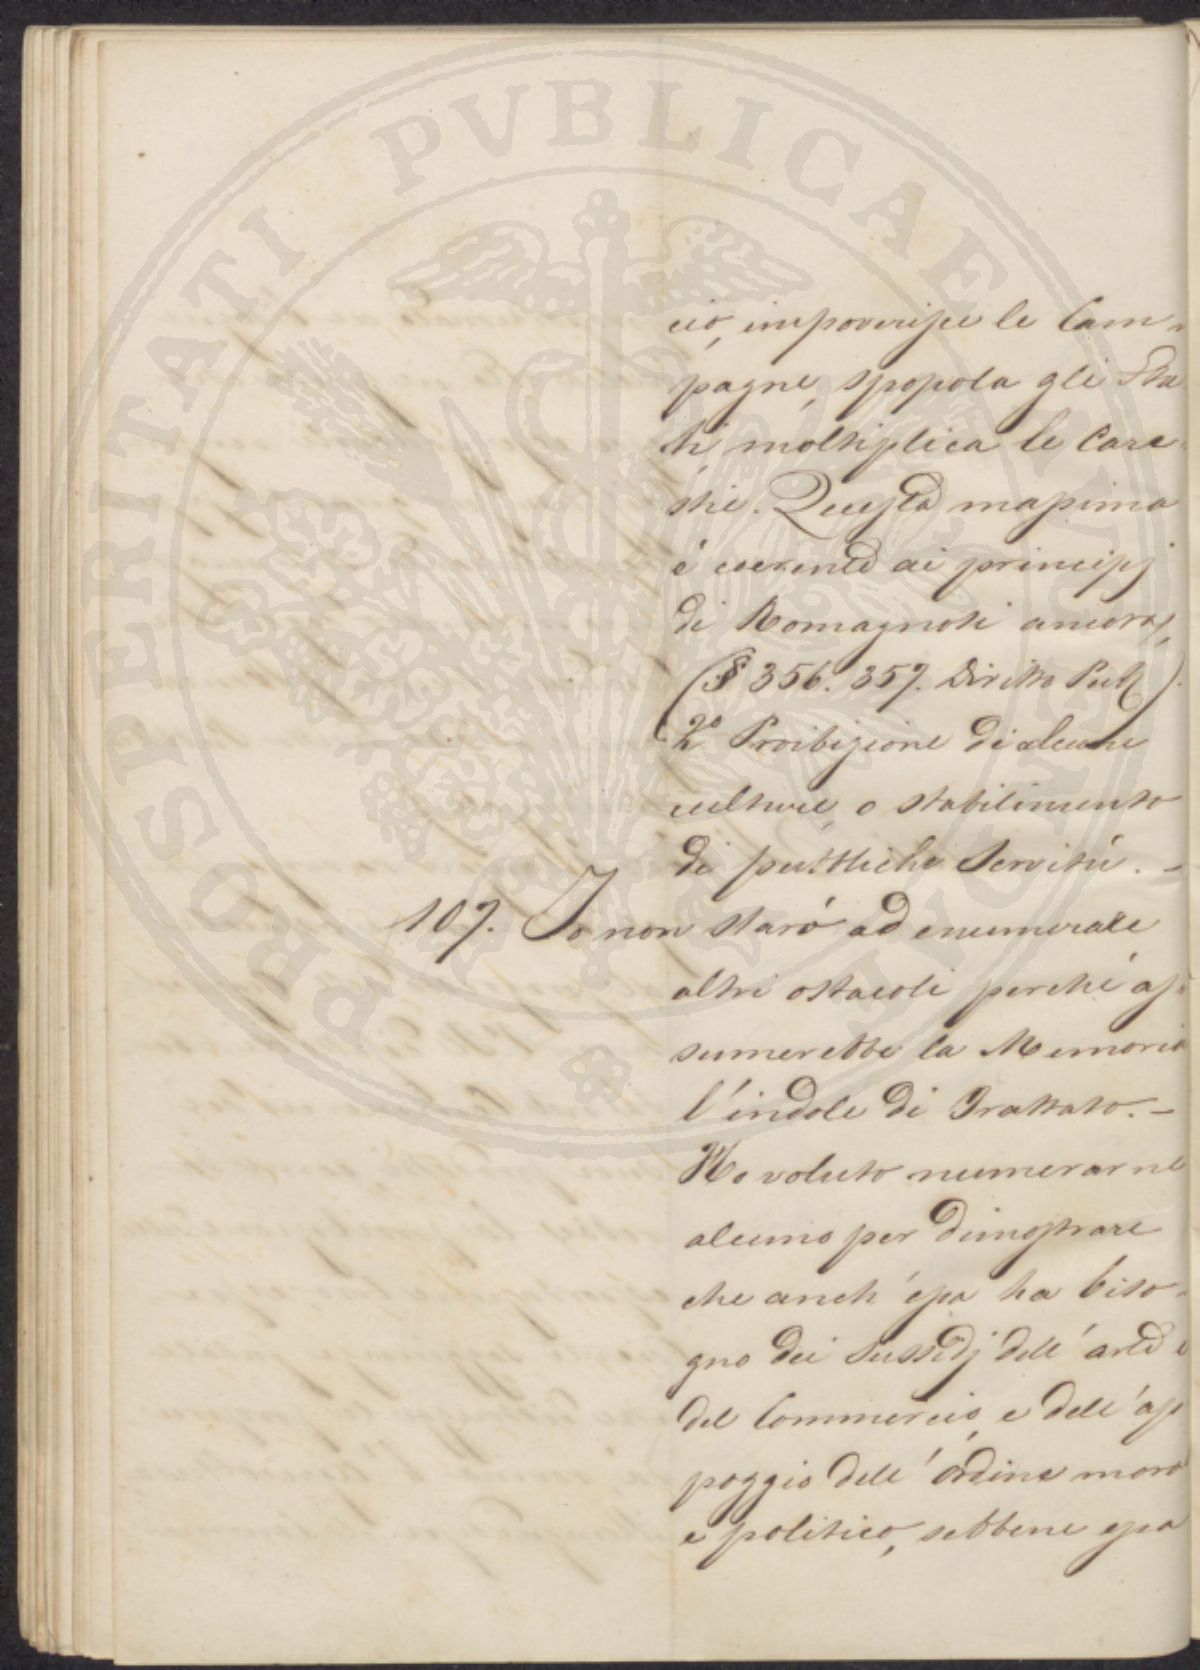 PROSPERITATI PVBLICAE
cio, impoverisce le Cam-
pagne, spopola gli Sta
ti, moltiplica le Care
stie. Questa massima
é coerente ai principj
di Romagnosi ancora,
(§ 356. 357. Diritto Pub.).
2° Proibizione di alcune
culture, o stabilimento
di pubbliche Servitù. -
107. Io non staró ad enumerare
altri ostacoli perché as-
sumerebbe la Memoria
l'indole di Trattato. -
Ho voluto numerarne
alcuno per dimostrare
che anch'essa ha biso-
gno dei Sussidj dell'arte e
del Commercio, e dell'ap
poggio dell'ordine moro
e politico, sebbene essa